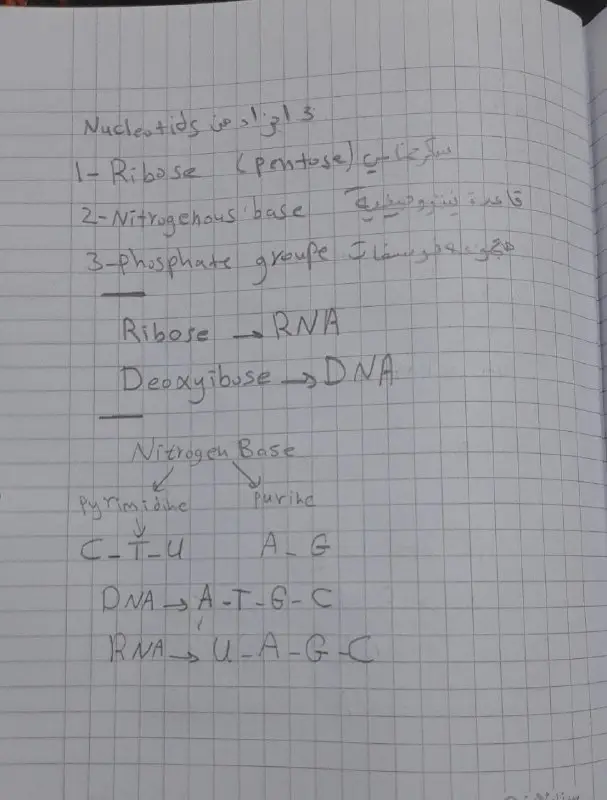 Nucleotids 3 اجزاء من
1- Ribose (pentose) سكر خماسي
2- Nitrogenous base قاعدة نيتروجينية
3- phosphate groupe مجموعة فوسفات
Ribose → RNA
Deoxyibose → DNA
Nitrogen Base
pyrimidine purine
C - T - U A - G
DNA → A - T - G - C
RNA → U - A - G - C